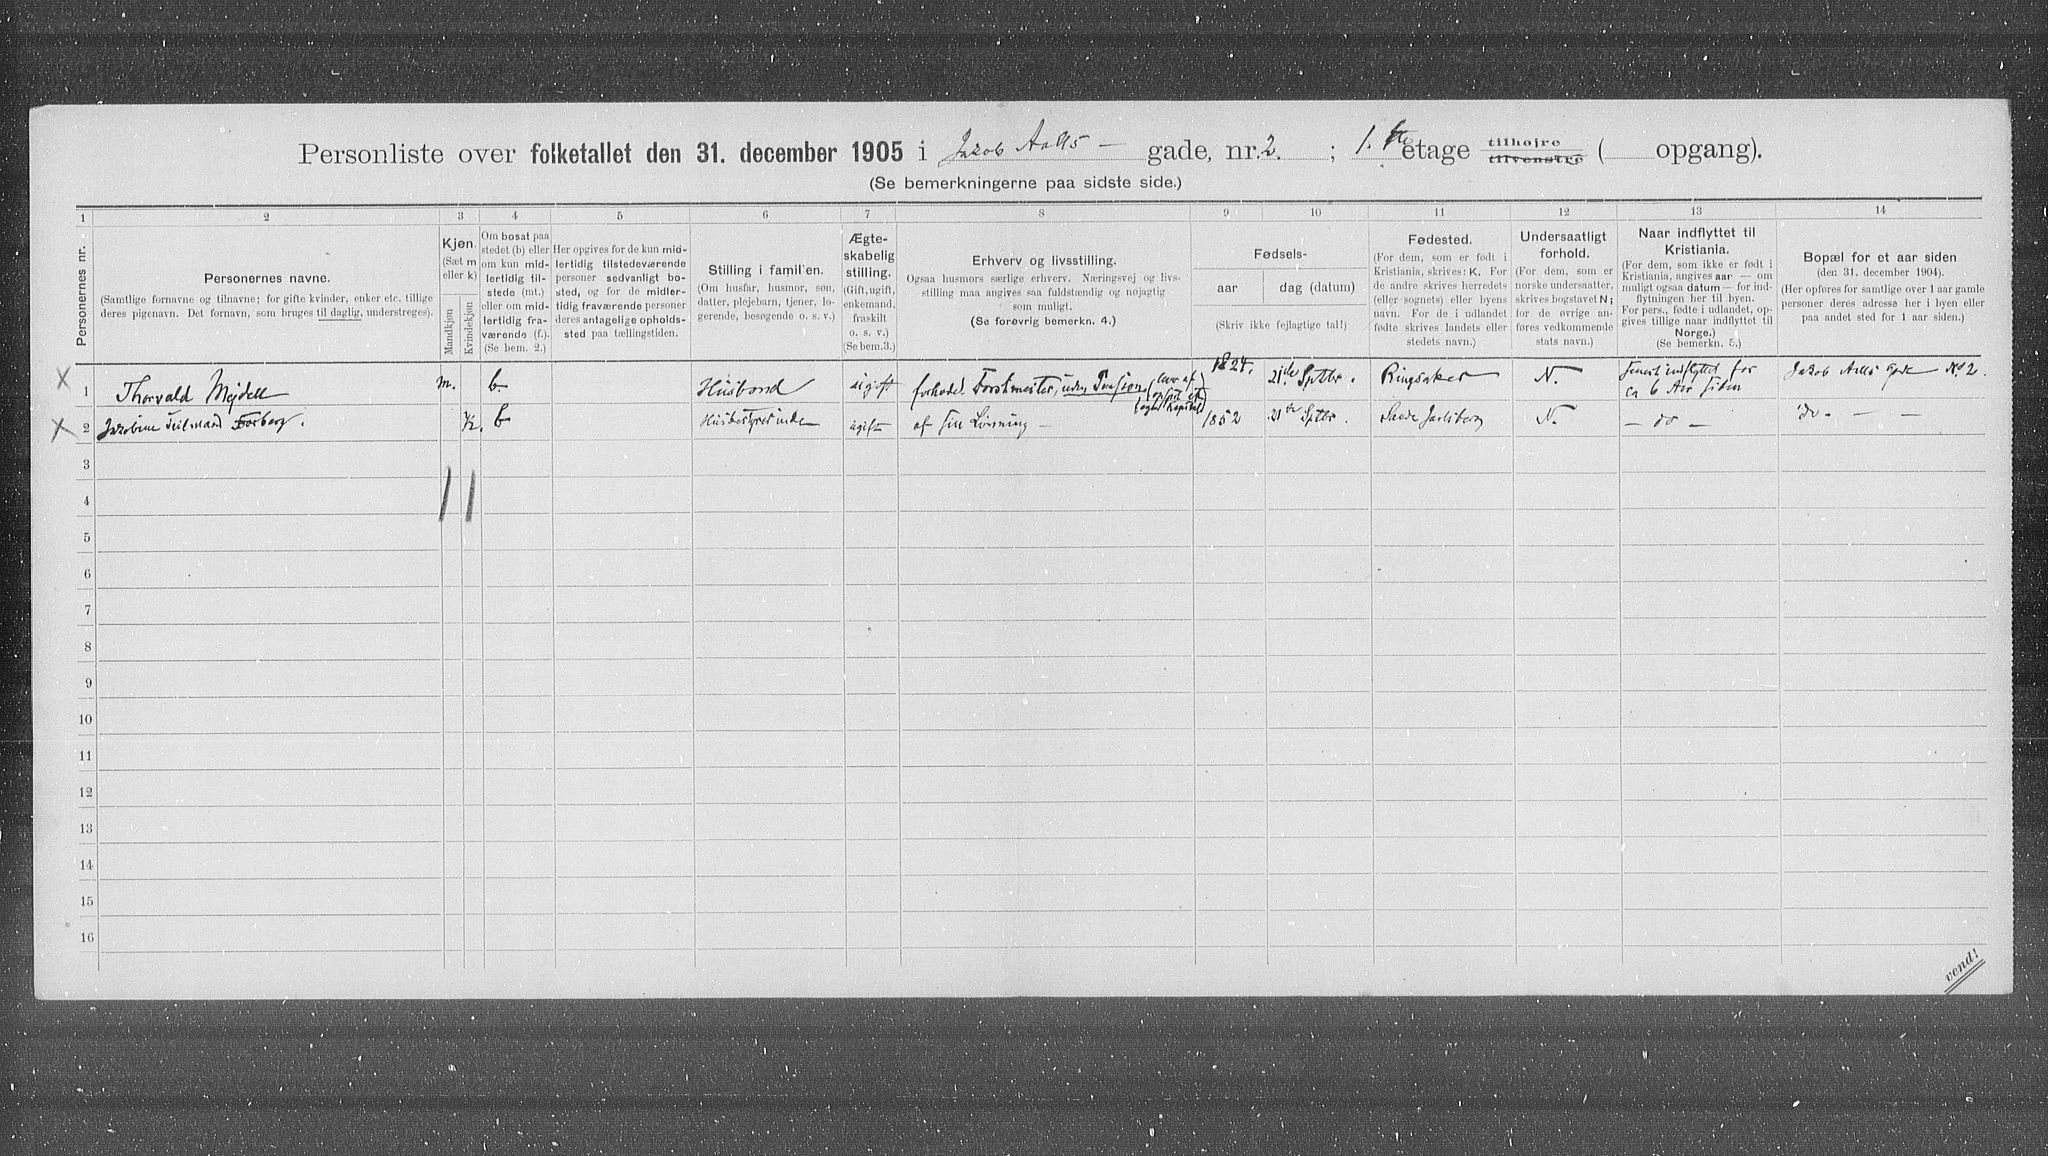 Personliste over folketallet den 31. december 1905 i Jakob Aalls — gade, nr. 2. ; 1.ste etage tilhøjre tilvenstre ( opgang).
(Se bemerkningerne paa sidste side.)
1 2 3 4 5 6 7 8 9 10 11 12 13 14
Personernes nr.
Personernes navne.
(Samtlige fornavne og tilnavne; for gifte kvinder, enker etc. tillige
deres pigenavn. Det fornavn, som bruges til daglig, understreges).
Kjøn.
(Sæt m
eller k)
Mandkjøn
Kvindekjøn
Om bosat paa
stedet (b) eller
om kun mid-
lertidig til-
stede (mt.)
eller om mid-
lertidig fra-
værende (f.).
(Se bem. 2.)
Her opgives for de kun mid-
lertidig tilstedeværende
personer sedvanligt bo-
sted, og for de midler-
tidig fraværende personer
deres antagelige opholds-
sted paa tællingstiden.
Stilling i familien.
(Om husfar, husmor, søn,
datter, plejebarn, tjener, lo-
gerende, besøgende o. s. v.)
Ægte-
skabelig
stilling.
(Gift, ugift,
enkemand,
fraskilt
o. s. v.)
(Se bem. 3.)
Erhverv og livsstilling.
Ogsaa husmors særlige erhverv. Næringsvej og livs-
stilling maa angives saa fuldstændig og nøjagtig
som muligt.
(Se forøvrig bemerkn. 4.)
Fødsels-
aar
dag (datum)
(Skriv ikke fejlagtige tal!)
Fødested.
(For dem, som er født i
Kristiania, skrives: K. For
de andre skrives herredets
(eller sognets) eller byens
navn. For de i udlandet
fødte skrives landets eller
stedets navn.)
Undersaatligt
forhold.
(For dem, som er
norske undersaatter,
skrives bogstavet N;
for de øvrige an-
føres vedkommende
stats navn.)
Naar indflyttet til
Kristiania.
(For dem, som ikke er født i
Kristiania, angives aar — om
muligt ogsaa datum — for ind-
flytningen her til byen.
For pers., fødte i udlandet, op-
gives tillige naar indflyttet til
Norge.)
(Se bemerkn. 5.)
Bopæl for et aar siden
(den 31. december 1904).
(Her opføres for samtlige over 1 aar gamle
personer deres adresse her i byen eller
paa andet sted for 1 aar siden.)
X 1 Thorvald Mejdell m. b Husbond ugift forhend. Forstmester, uden Pension (lever af opspt. eft. Kapital) 1824. 21de Septbr. Ringsaker N. indflyttet for ca 6 Aar siden Jakob Aalls Gade No 2.
X 2 Jakobine Teilmand Forberg. K. b Husbestyrerinde ugift af sin Lønning — 1852 21de Septbr. Sande Jarlsberg N. — do — do. — —
3
4
5
6
7
8
9
10
11
12
13
14
15
16
vend!